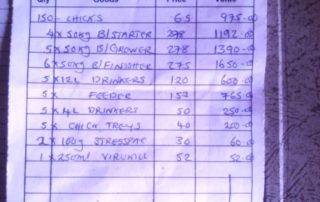 Qty Goods Price Value
150 - CHICKS 65 975-00
4 x 50kg B/STARTER 298 1192-00
5 x 50kg B/GROWER 278 1390-00
6 x 50kg B/FINISHER 275 1650-00
5 x 12L DRINKERS 120 600-00
5 x FEEDER 153 765-00
5 x 4L DRINKERS 50 250-00
5 x CHICK TREYS 40 200-00
2 x 100g STRESSPAC 30 60-00
1 x 250ml VIRUKILL 52 52-00